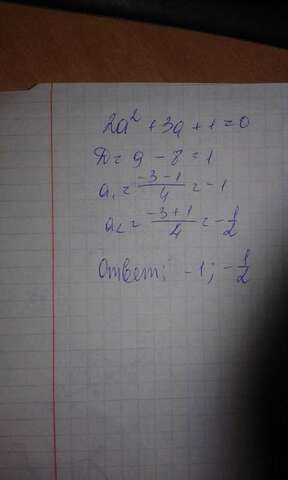 2a² + 3a + 1 = 0
D = 9 - 8 = 1
a₁ = (-3 - 1)/4 = -1
a₂ = (-3 + 1)/4 = -1/2
Ответ: -1; -1/2